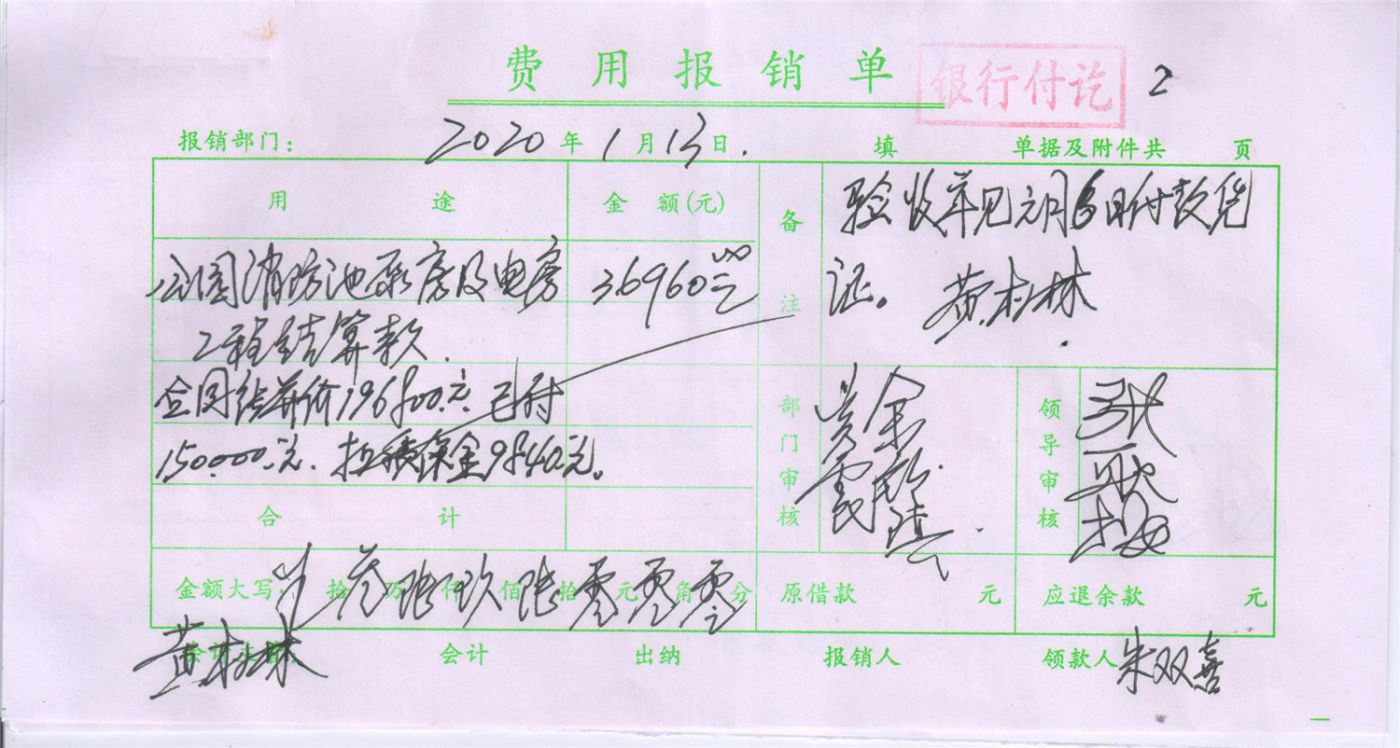 费用报销单
银行付讫
2
报销部门: 2020年1月13日. 填 单据及附件共 页
用 途
金 额(元)
备注
验收单见元月6日付款凭
证。 黄村林
公园消防池泵房及电房
工程结算款.
36960.00
合同结算价196800.元.已付
150000.元.扣质保金9840.元。
合 计
部门审核
领导审核
金额大写: 拾 万 仟 佰 拾 元 角 分
叁陆玖陆零零零
原借款 元
应退余款 元
黄村林
会计
出纳
报销人
领款人 朱双喜